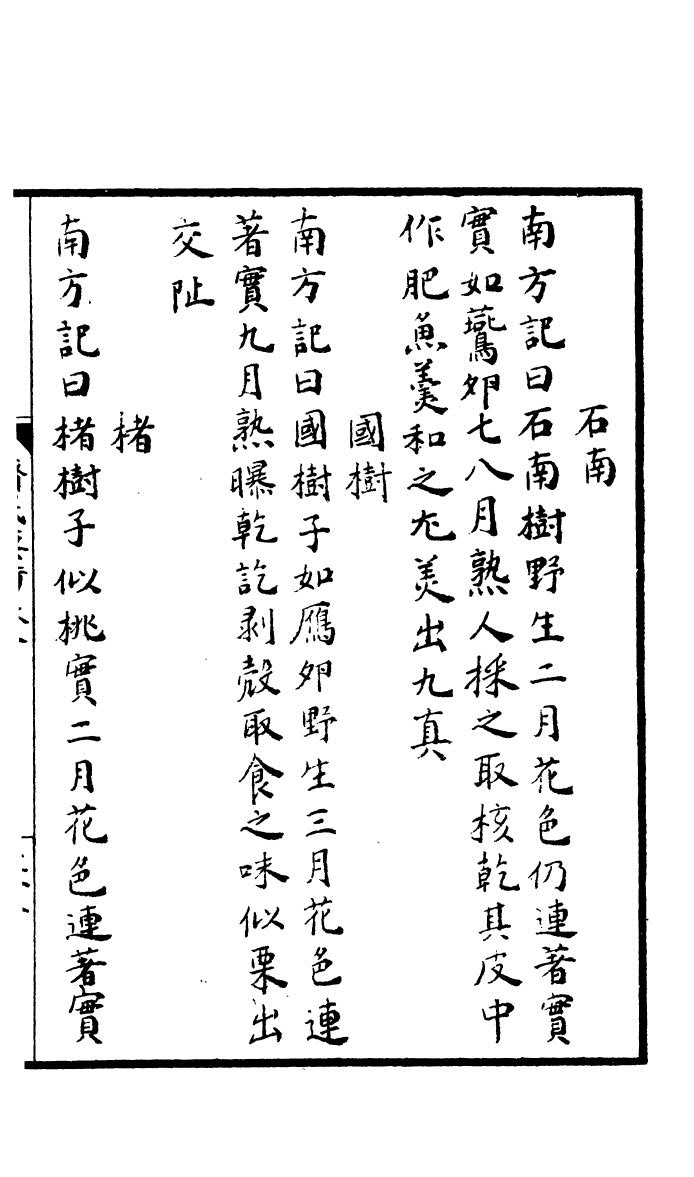 石南
南方記曰石南樹野生二月花色仍連著實
實如鷰夘七八月熟人採之取核乾其皮中
作肥魚羹和之尤美出九真
國樹
南方記曰國樹子如鴈夘野生三月花色連
著實九月熟曝乾訖剥殼取食之味似栗出
交阯
楮
南方記曰楮樹子似桃實二月花色連著實